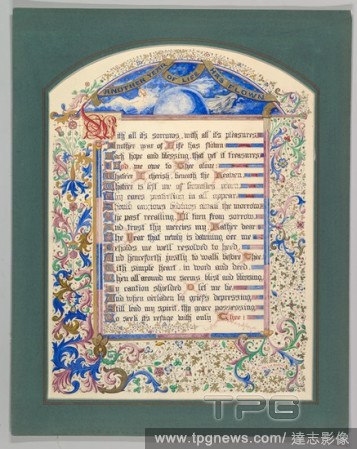 ANOTHER YEAR OF LIFE HAS FLOWN
With all its sorrows, with all its pleasures
Another year of Life has flown
Each hope and blessing, that yet it treasures
me owe to Thee alone
I cherish, beneath the Heaven
is left me of
cares in all appear
The past recalling, I'll turn from sorrow
And trust thy mercies my Father dear
The Year that newly is dawning o'er me
me well resolved to heed
And henceforth justly to walk before Thee
With simple heart in word and deed
all around me seems blest and
By caution shielded O let me be
And when by griefs depressing
Still lead my spirit, thy grace possessing
To seek its refuge with only Thee
TPG
www.tpgnews.com/ 達志影像